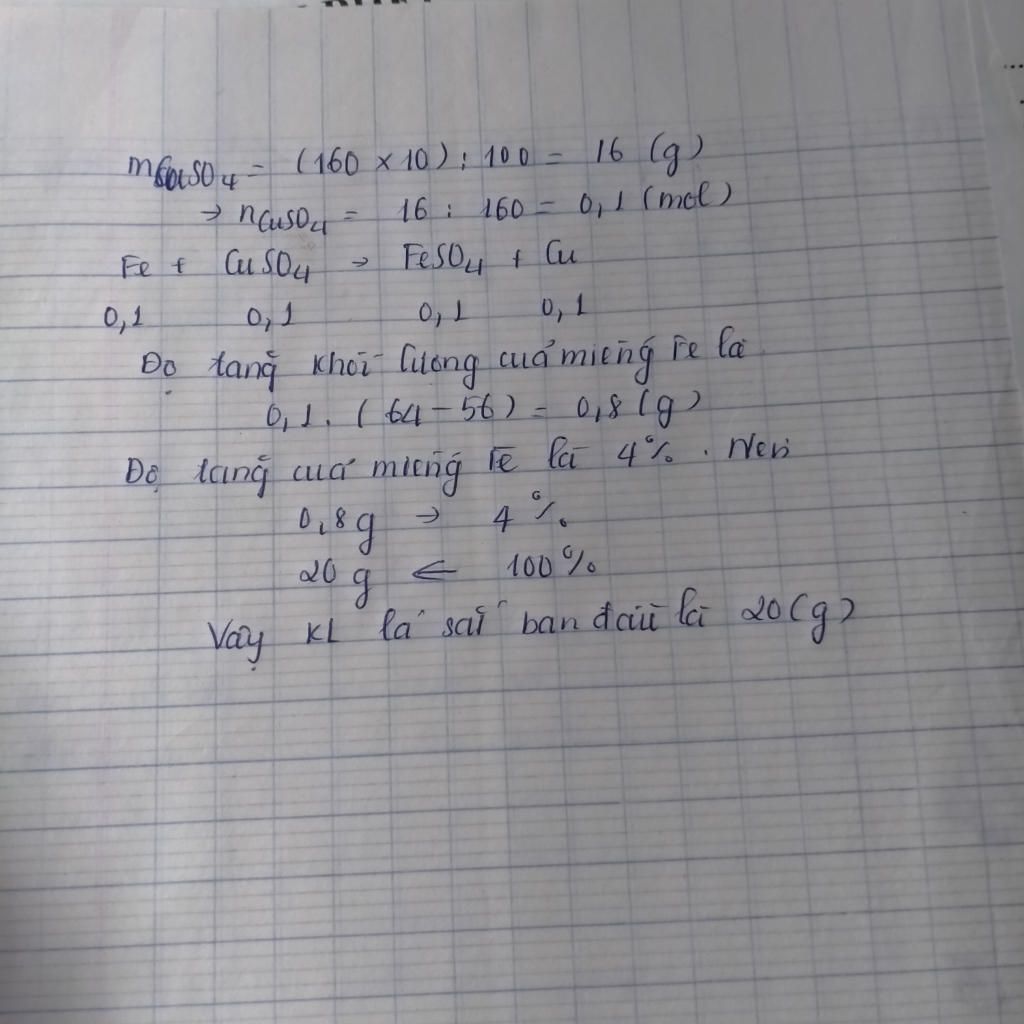 mCuSO4 = (160 x 10) : 100 = 16 (g)
→ nCuSO4 = 16 : 160 = 0,1 (mol)
Fe + CuSO4 → FeSO4 + Cu
0,1 0,1 0,1 0,1
Độ tăng khối lượng của miếng Fe là
0,1 . ( 64 - 56 ) = 0,8 (g)
Độ tăng của miếng Fe là 4% . Nên
0,8g → 4%
20g ← 100%
Vậy KL lá sắt ban đầu là 20(g)